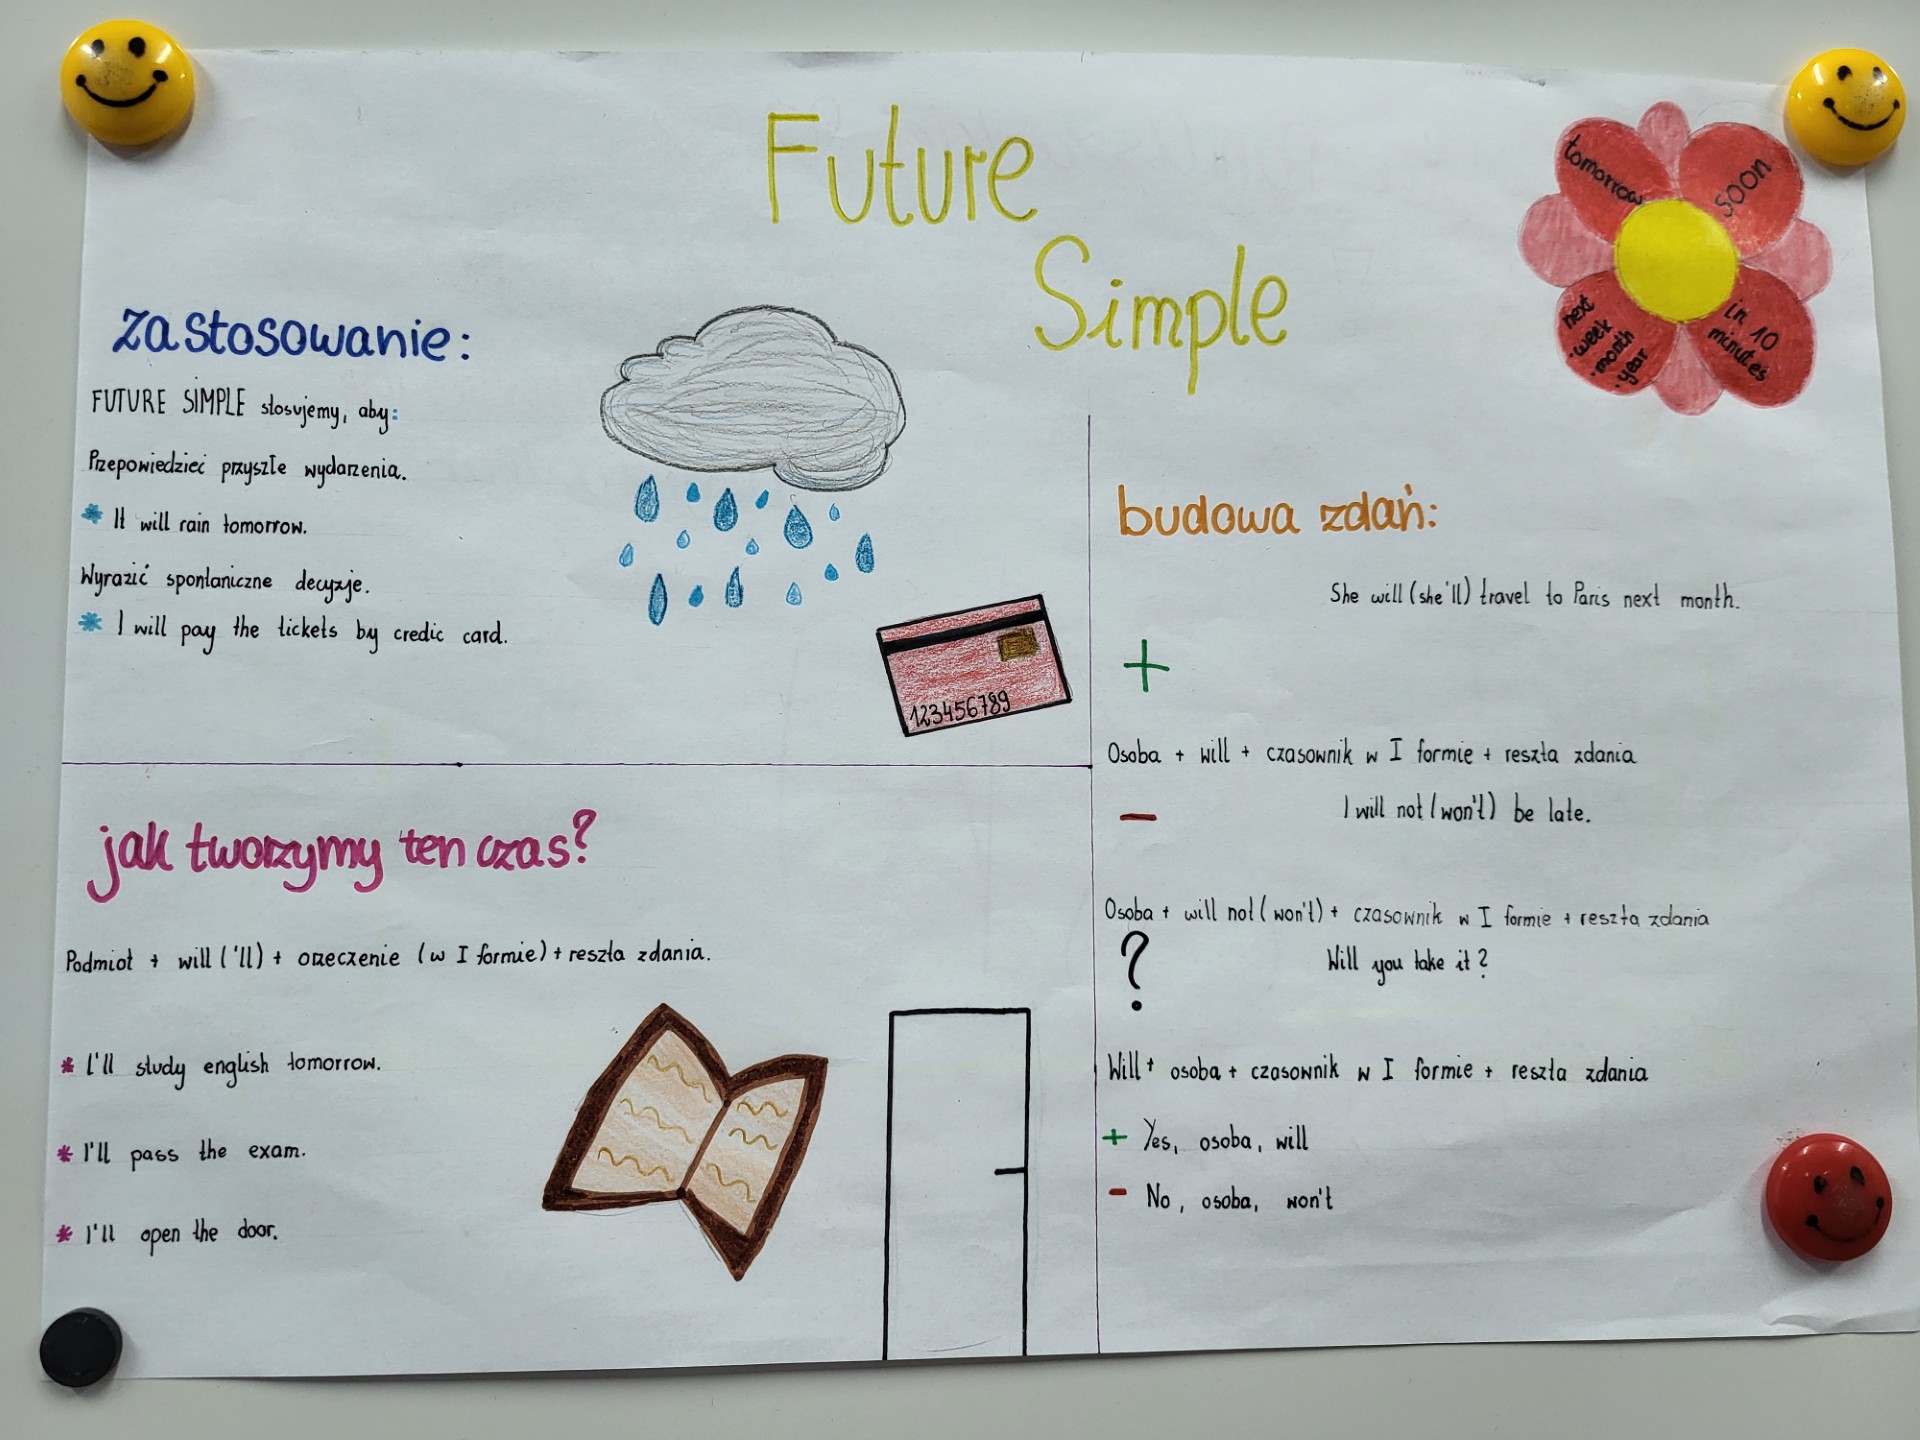 Future
Simple
tomorrow
soon
next
·week
·month
·year
in 10
minutes
zastosowanie:
FUTURE SIMPLE stosujemy, aby:
Przepowiedzieć przyszłe wydarzenia.
* It will rain tomorrow.
Wyrazić spontaniczne decyzje.
* I will pay the tickets by credic card.
123456789
jak tworzymy ten czas?
Podmiot + will ('ll) + orzeczenie (w I formie) + reszta zdania.
* I'll study english tomorrow.
* I'll pass the exam.
* I'll open the door.
budowa zdań:
She will (she'll) travel to Paris next month.
+
Osoba + will + czasownik w I formie + reszta zdania
- I will not (won't) be late.
Osoba + will not (won't) + czasownik w I formie + reszta zdania
? Will you take it?
Will + osoba + czasownik w I formie + reszta zdania
+ Yes, osoba, will
- No, osoba, won't